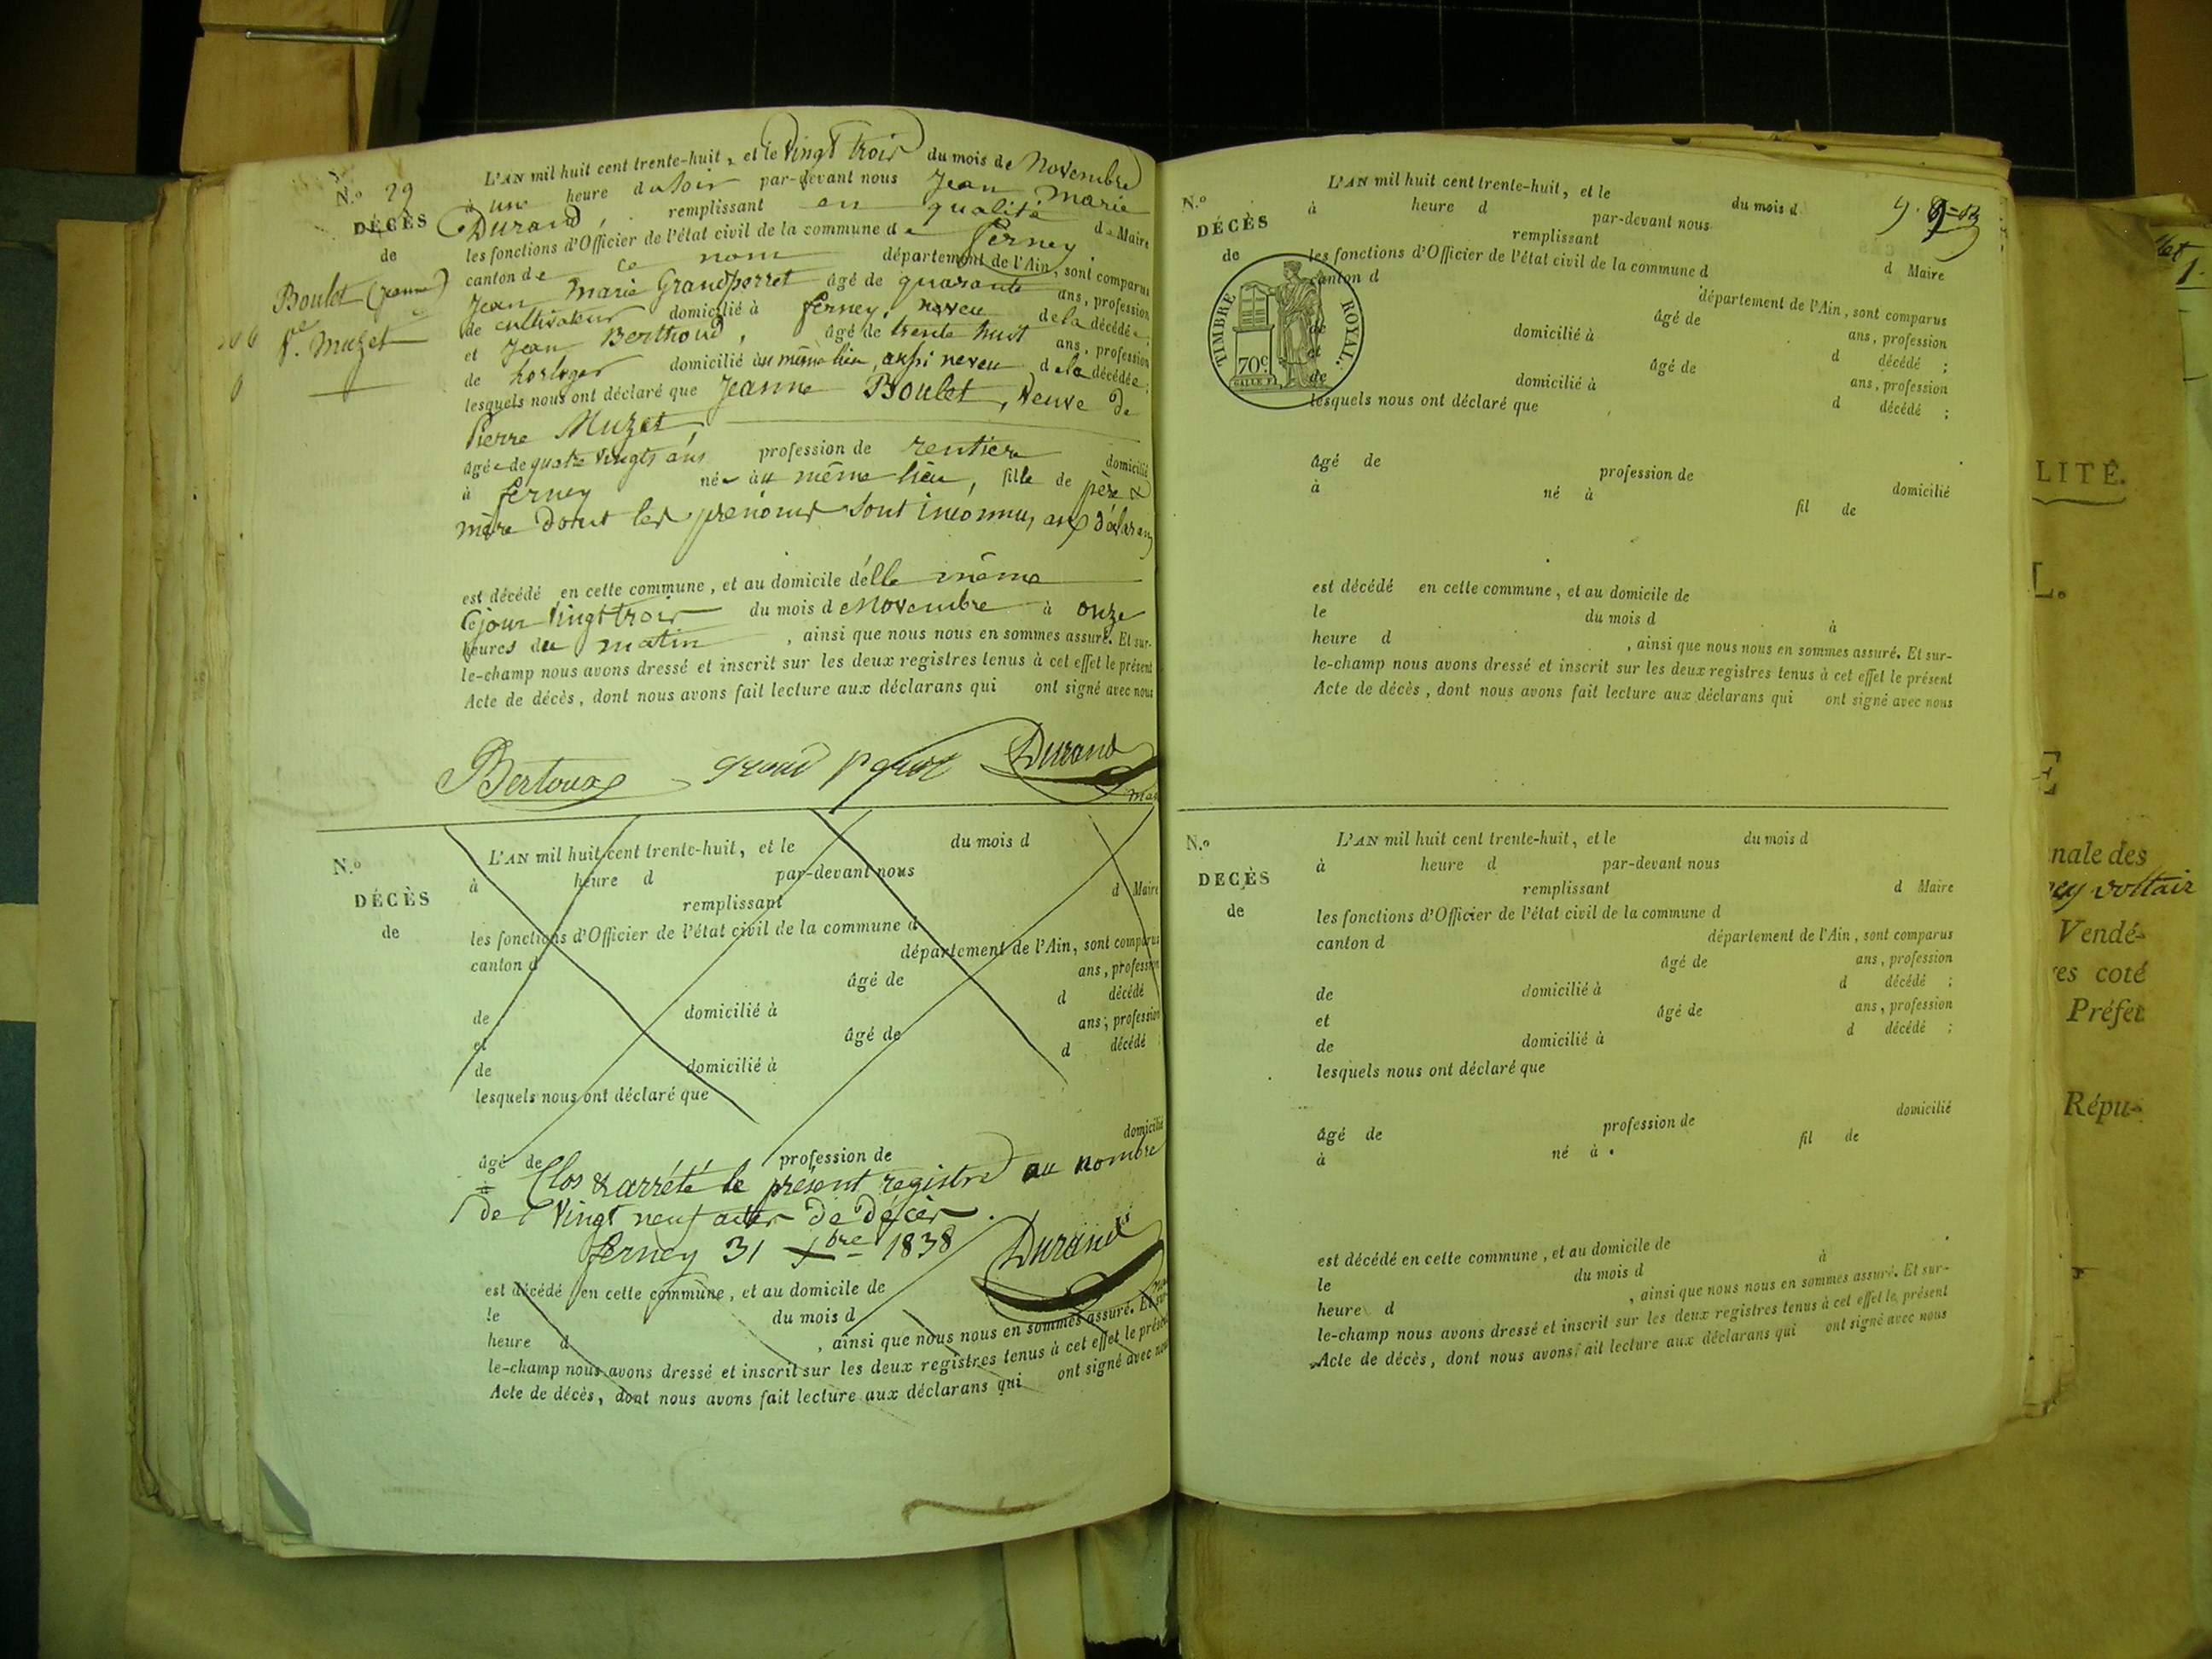 N.o 29
DÉCÈS
de
Boulet (Jeanne)
Ve. Muzet
L'AN mil huit cent trente-huit, et le Vingt trois du mois de Novembre
à une heure du soir par-devant nous Jean Marie
Durand, remplissant en qualité de Maire
les fonctions d'Officier de l'état civil de la commune de Ferney
canton de ce nom département de l'Ain, sont comparus
Jean Marie Grandperret âgé de quarante ans, profession
de cultivateur domicilié à Ferney, neveu de la décédée;
et Jean Berthoud, âgé de trente huit ans, profession
de horloger domicilié au même lieu, aussi neveu de la décédée;
lesquels nous ont déclaré que Jeanne Boulet, Veuve de
Pierre Muzet
âgée de quatre vingts ans profession de rentière domicilié
à Ferney née au même lieu, fille de père &
mère dont les prénoms sont inconnus aux déclarans
est décédé en cette commune, et au domicile d'elle même
ce jour vingt trois du mois de Novembre à onze
heures du matin, ainsi que nous nous en sommes assuré. Et sur-
le-champ nous avons dressé et inscrit sur les deux registres tenus à cet effet le présent
Acte de décès, dont nous avons fait lecture aux déclarans qui ont signé avec nous
Bertoux grand perret Durand
N.o
DÉCÈS
de
L'AN mil huit cent trente-huit, et le du mois d
à heure d par-devant nous
remplissant d Maire
les fonctions d'Officier de l'état civil de la commune d
canton d département de l'Ain, sont comparus
âgé de ans, profession
de domicilié à d décédé
et âgé de ans, profession
de domicilié à d décédé
lesquels nous ont déclaré que
âgé de profession de domicilié
à Clos & arrêté le présent registre au nombre
de Vingt neuf actes de décès.
Ferney 31 Xbre 1838 Durand
est décédé en cette commune, et au domicile de
le du mois d
heure d , ainsi que nous nous en sommes assuré. Et sur-
le-champ nous avons dressé et inscrit sur les deux registres tenus à cet effet le présent
Acte de décès, dont nous avons fait lecture aux déclarans qui ont signé avec nous
N.o
DÉCÈS
de
TIMBRE ROYAL.
70c
L'AN mil huit cent trente-huit, et le du mois d
à heure d par-devant nous
remplissant d Maire
les fonctions d'Officier de l'état civil de la commune d
canton d département de l'Ain, sont comparus
âgé de ans, profession
de domicilié à d décédé ;
et âgé de ans, profession
de domicilié à d décédé ;
lesquels nous ont déclaré que
âgé de profession de domicilié
à né à fil de
est décédé en cette commune, et au domicile de
le du mois d à
heure d , ainsi que nous nous en sommes assuré. Et sur-
le-champ nous avons dressé et inscrit sur les deux registres tenus à cet effet le présent
Acte de décès, dont nous avons fait lecture aux déclarans qui ont signé avec nous
N.o
DECÈS
de
L'AN mil huit cent trente-huit, et le du mois d
à heure d par-devant nous
remplissant d Maire
les fonctions d'Officier de l'état civil de la commune d
canton d département de l'Ain, sont comparus
âgé de ans, profession
de domicilié à d décédé ;
et âgé de ans, profession
de domicilié à d décédé ;
lesquels nous ont déclaré que
âgé de profession de domicilié
à né à fil de
est décédé en cette commune, et au domicile de
le du mois d à
heure d , ainsi que nous nous en sommes assuré. Et sur-
le-champ nous avons dressé et inscrit sur les deux registres tenus à cet effet le présent
Acte de décès, dont nous avons fait lecture aux déclarans qui ont signé avec nous
LITÉ.
L.
E
nale des
voltair
Vendé-
res coté
Préfet
Répu-